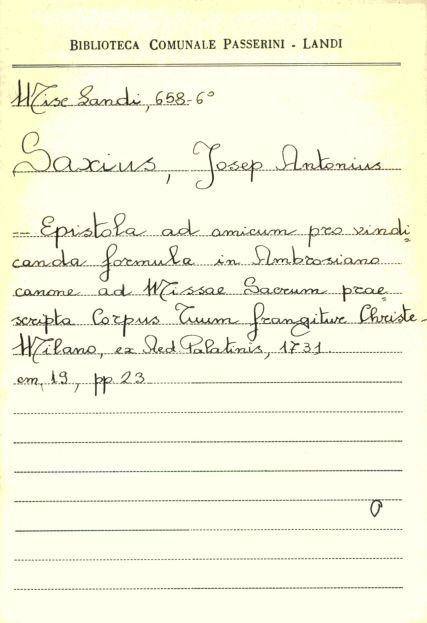 BIBLIOTECA COMUNALE PASSERINI - LANDI
Misc Landi, 658-6°
Saxius, Josep Antonius
-- Epistola ad amicum pro vindi=
canda formula in Ambrosiano
canone ad Missae Sacrum prae=
scripta Corpus Tuum frangitur Christe -
Milano, ex Aed Palatinis, 1731
cm, 19, pp 23